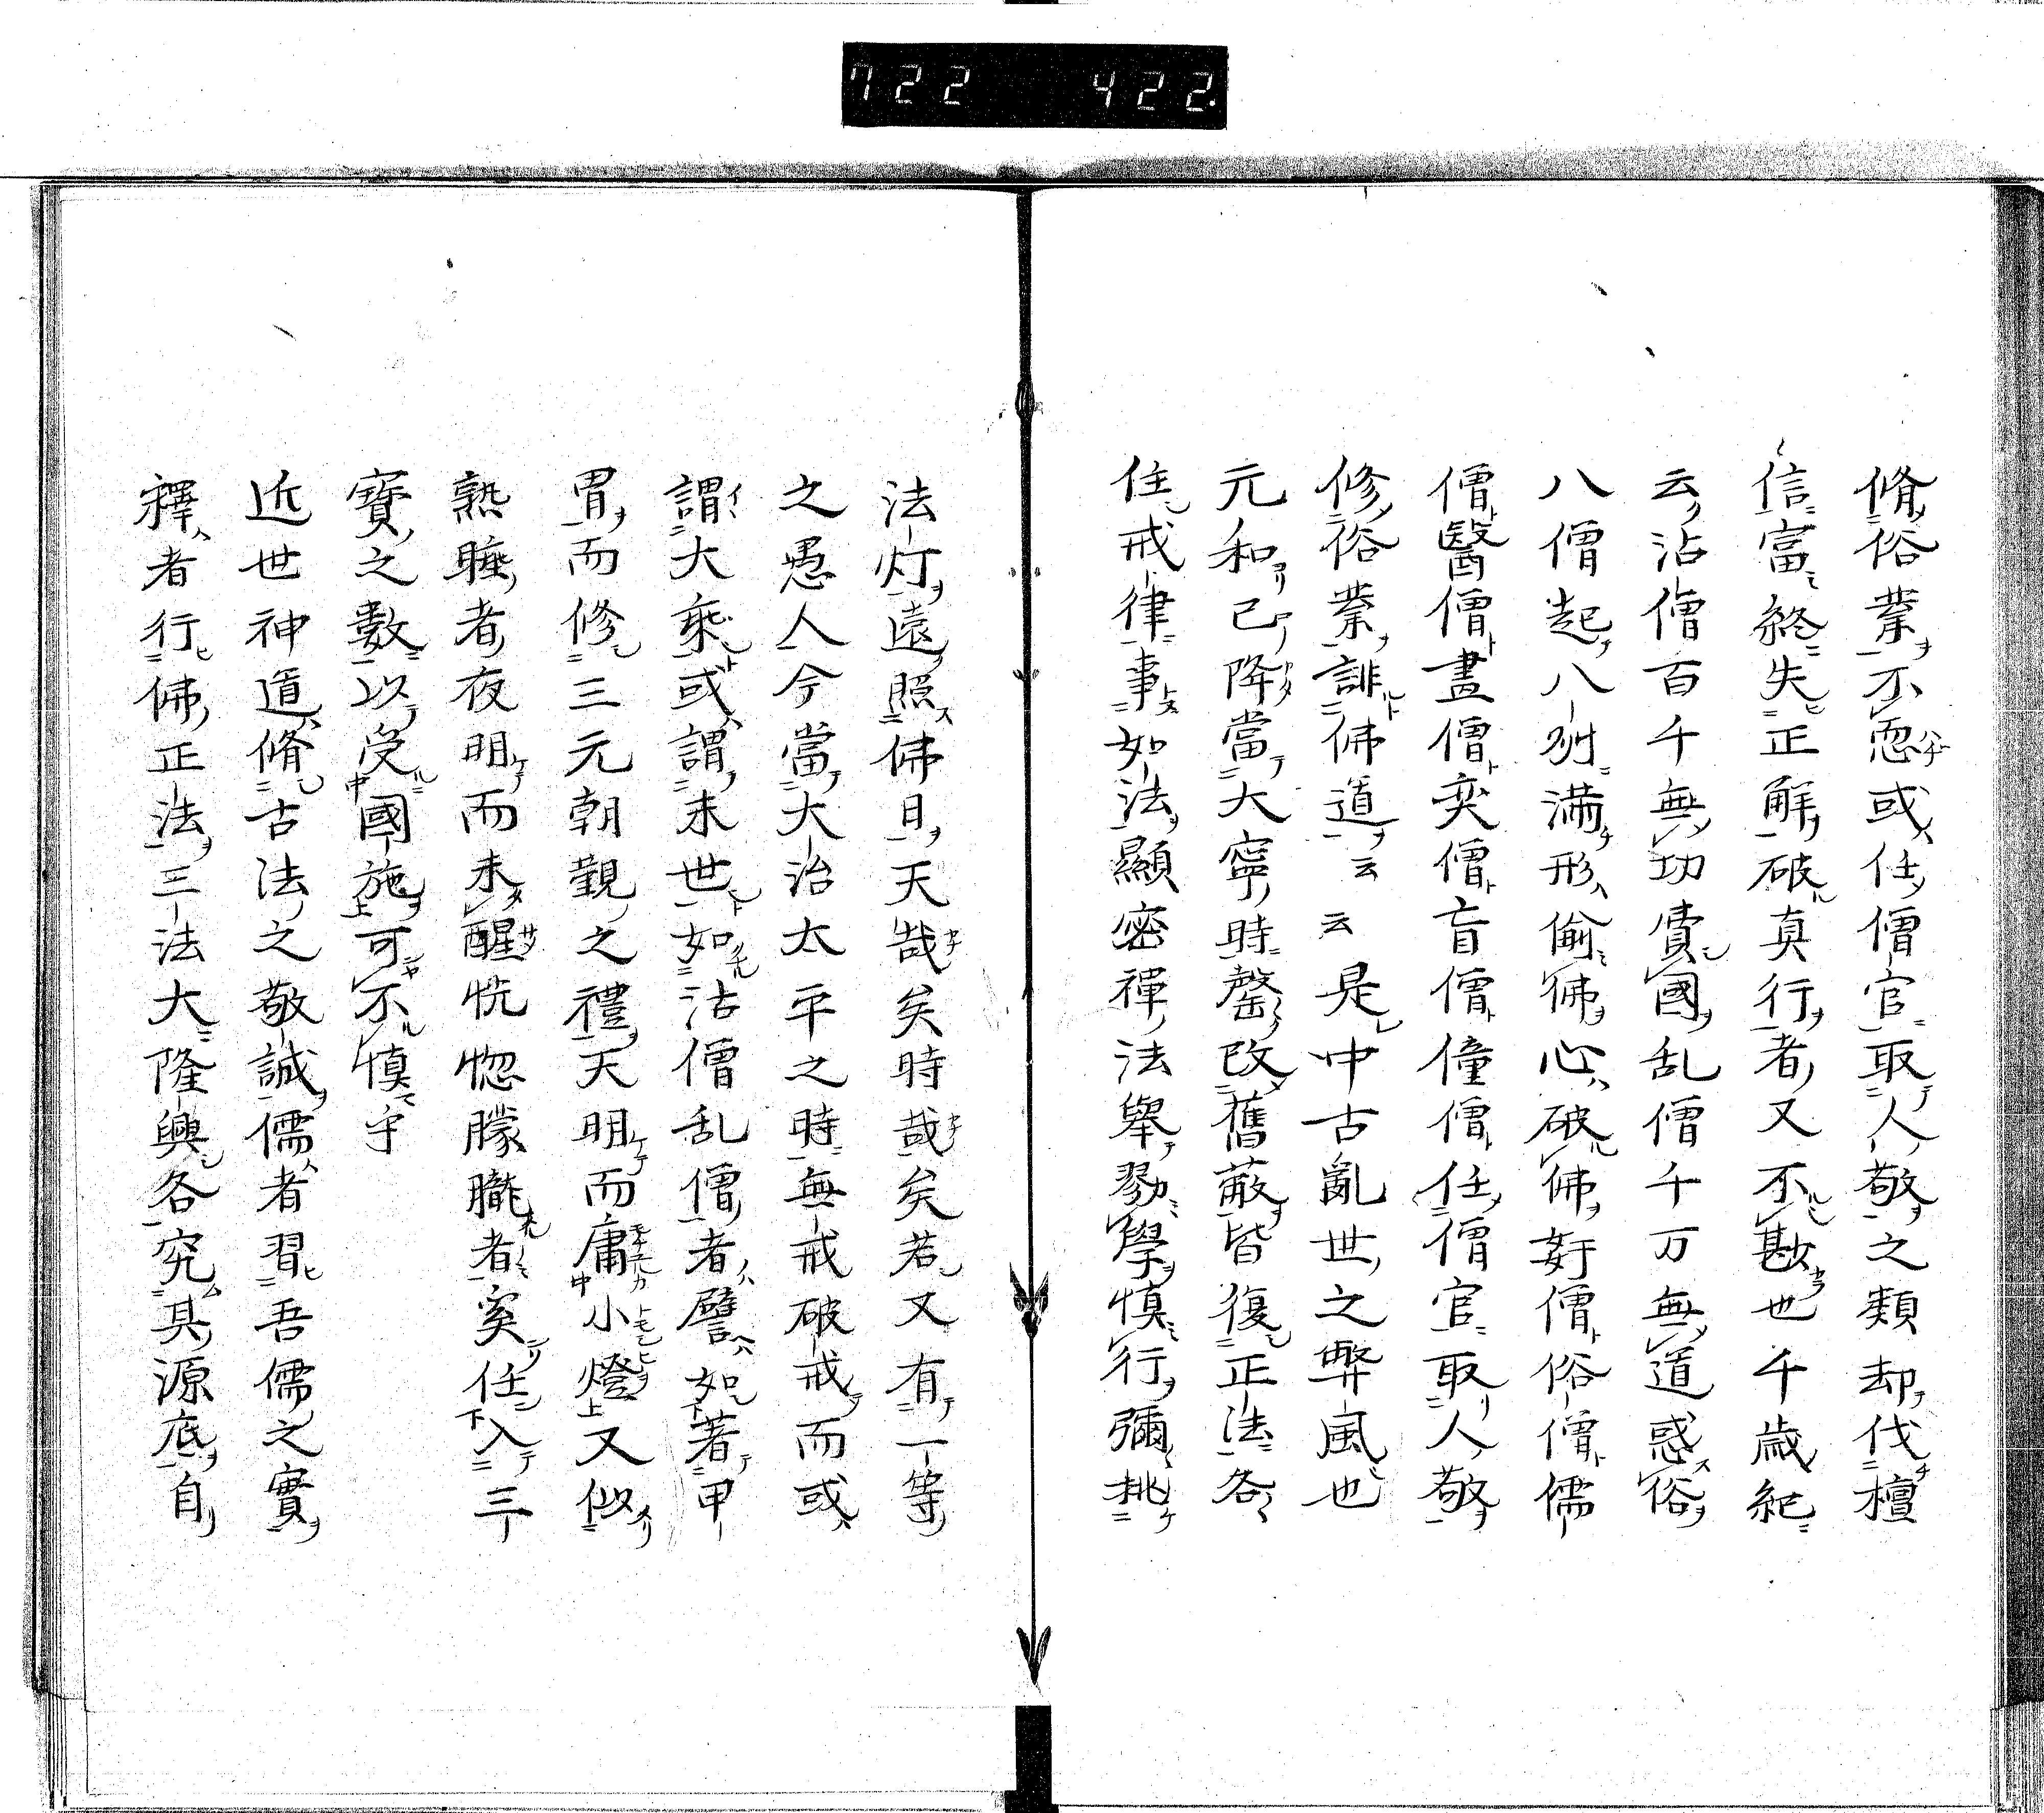 722 422.
脩俗業不恧或仕僧官取人敬之類却伐檀
信富終失正解破真行者又不勘也千歳紀
云沾僧百千無功費國乱僧千万無道惑俗
八僧起八州満形偷佛心破佛姧僧俗僧儒
僧醫僧畫僧奕僧盲僧僮僧任僧官取人敬
修俗業誹佛道云云是中古亂世之弊風也
元和已降當大寧時罄改舊蔽皆復正法各
住戒律事如法顯密禪法舉勠學慎行彌挑
法灯遠照佛日天哉矣時哉矣若又有一等
之愚人今當大治太平之時無戒破戒而或
謂大乘或謂末世如沾僧乱僧者譬如著甲
冑而修三元朝觀之禮天明而庸小燈又似
熟睡者夜明而未醒恍惚朦朧者奚任入三
寶之數以受國施可不慎乎
近世神道脩古法之敬誠儒者習吾儒之實
釋者行佛正法三法大隆興各究其源底自